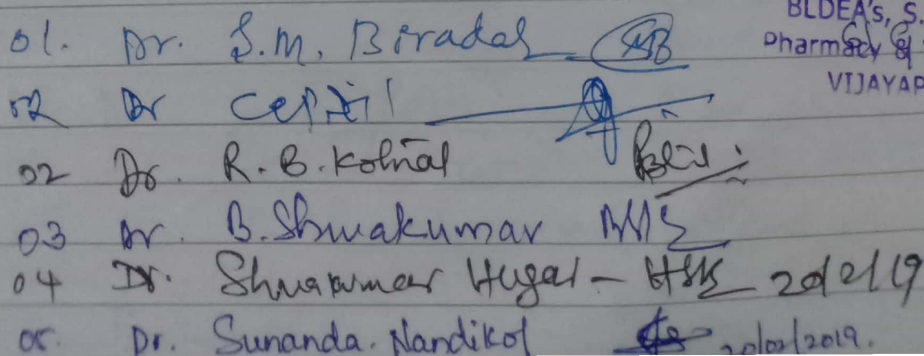 BLDEA's, S.
Pharmacy
VIJAYAP
01. Dr. S.M. Biradar
02 Dr
02 Dr. R.B. Kotnal
03 Dr. B. Shivakumar
04 Dr. Shivakumar Hugar - HSK 20/2/19
05. Dr. Sunanda. Nandikol 20/02/2019.